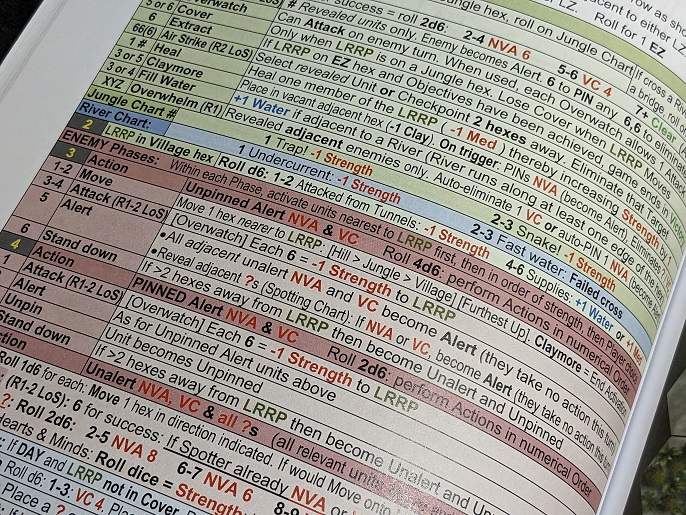 row as sho
adjacent to either LZ.
LZ. Roll for 1 EZ
Jungle hex, roll on Jungle Chart If cross a Riv
Overwatch success = roll 2d6: 2-4 NVA 6 5-6 VC 4 7+ Clear a bridge, roll o
5 or 6 Cover # Revealed units only. Enemy becomes Alert. 6 to PIN any, 6,6 to eliminate
6 Extract Can Attack on enemy turn. When used, each Overwatch allows 1 Attack
66(6) Air Strike (R2 LoS) Only when LRRP is on a Jungle hex. Lose Cover when LRRP Moves
1 # Heal If LRRP on EZ hex and Objectives have been achieved, game ends in
3 or 5 Claymore Select revealed Unit or Checkpoint 2 hexes away. Eliminate that Target
3 or 4 Fill Water Heal one member of the LRRP ( -1 Med ) thereby increasing Strength by 1
XYZ Overwhelm (R1) Place in vacant adjacent hex (-1 Clay). On trigger: PINs NVA (become Alert). Eliminate
Jungle Chart # +1 Water if adjacent to a River (River runs along at least one edge of the hex
River Chart: Revealed adjacent enemies only. Auto-eliminate 1 VC or auto-PIN 1 NVA (become
2 LRRP in Village hex 1 Trap! -1 Strength 2-3 Snake! -1 Strength
1 Undercurrent: -1 Strength 2-3 Fast water: Failed cross
Roll d6: 1-2 Attacked from Tunnels: -1 Strength 4-6 Supplies: +1 Water or +1 Med
3 ENEMY Phases: Within each Phase, activate units nearest to LRRP first, then in order of strength, then Player
Action Unpinned Alert NVA & VC Roll 4d6: perform Actions in numerical Order
1-2 Move Move 1 hex nearer to LRRP: [Hill > Jungle > Village] [Furthest Up]. Claymore = End Activation
3-4 Attack (R1-2 LoS) [Overwatch] Each 6 = -1 Strength to LRRP
5 Alert •All adjacent unalert NVA and VC become Alert (they take no action this turn
•Reveal adjacent ?s (Spotting Chart): If NVA or VC, become Alert (they take no action this turn
6 Stand down If >2 hexes away from LRRP then become Unalert and Unpinned
4 Action PINNED Alert NVA & VC Roll 2d6: perform Actions in numerical Order
1 Attack (R1-2 LoS) [Overwatch] Each 6 = -1 Strength to LRRP
Alert As for Unpinned Alert units above
Unpin Unit becomes Unpinned
Stand down If >2 hexes away from LRRP then become Unalert and Un
ction Unalert NVA, VC & all ?s (all relevant units
Roll 1d6 for each: Move 1 hex in direction indicated. If would Move onto
(R1-2 LoS): 6 for success: If Spotter already NVA or
?: Roll 2d6: 2-5 NVA 8 6-7 NVA 6 8-9
Hearts & Minds: Roll dice = Strength
: If DAY and LRRP not in Cover,
Roll d6: 1-3: VC 4,
Place a ?